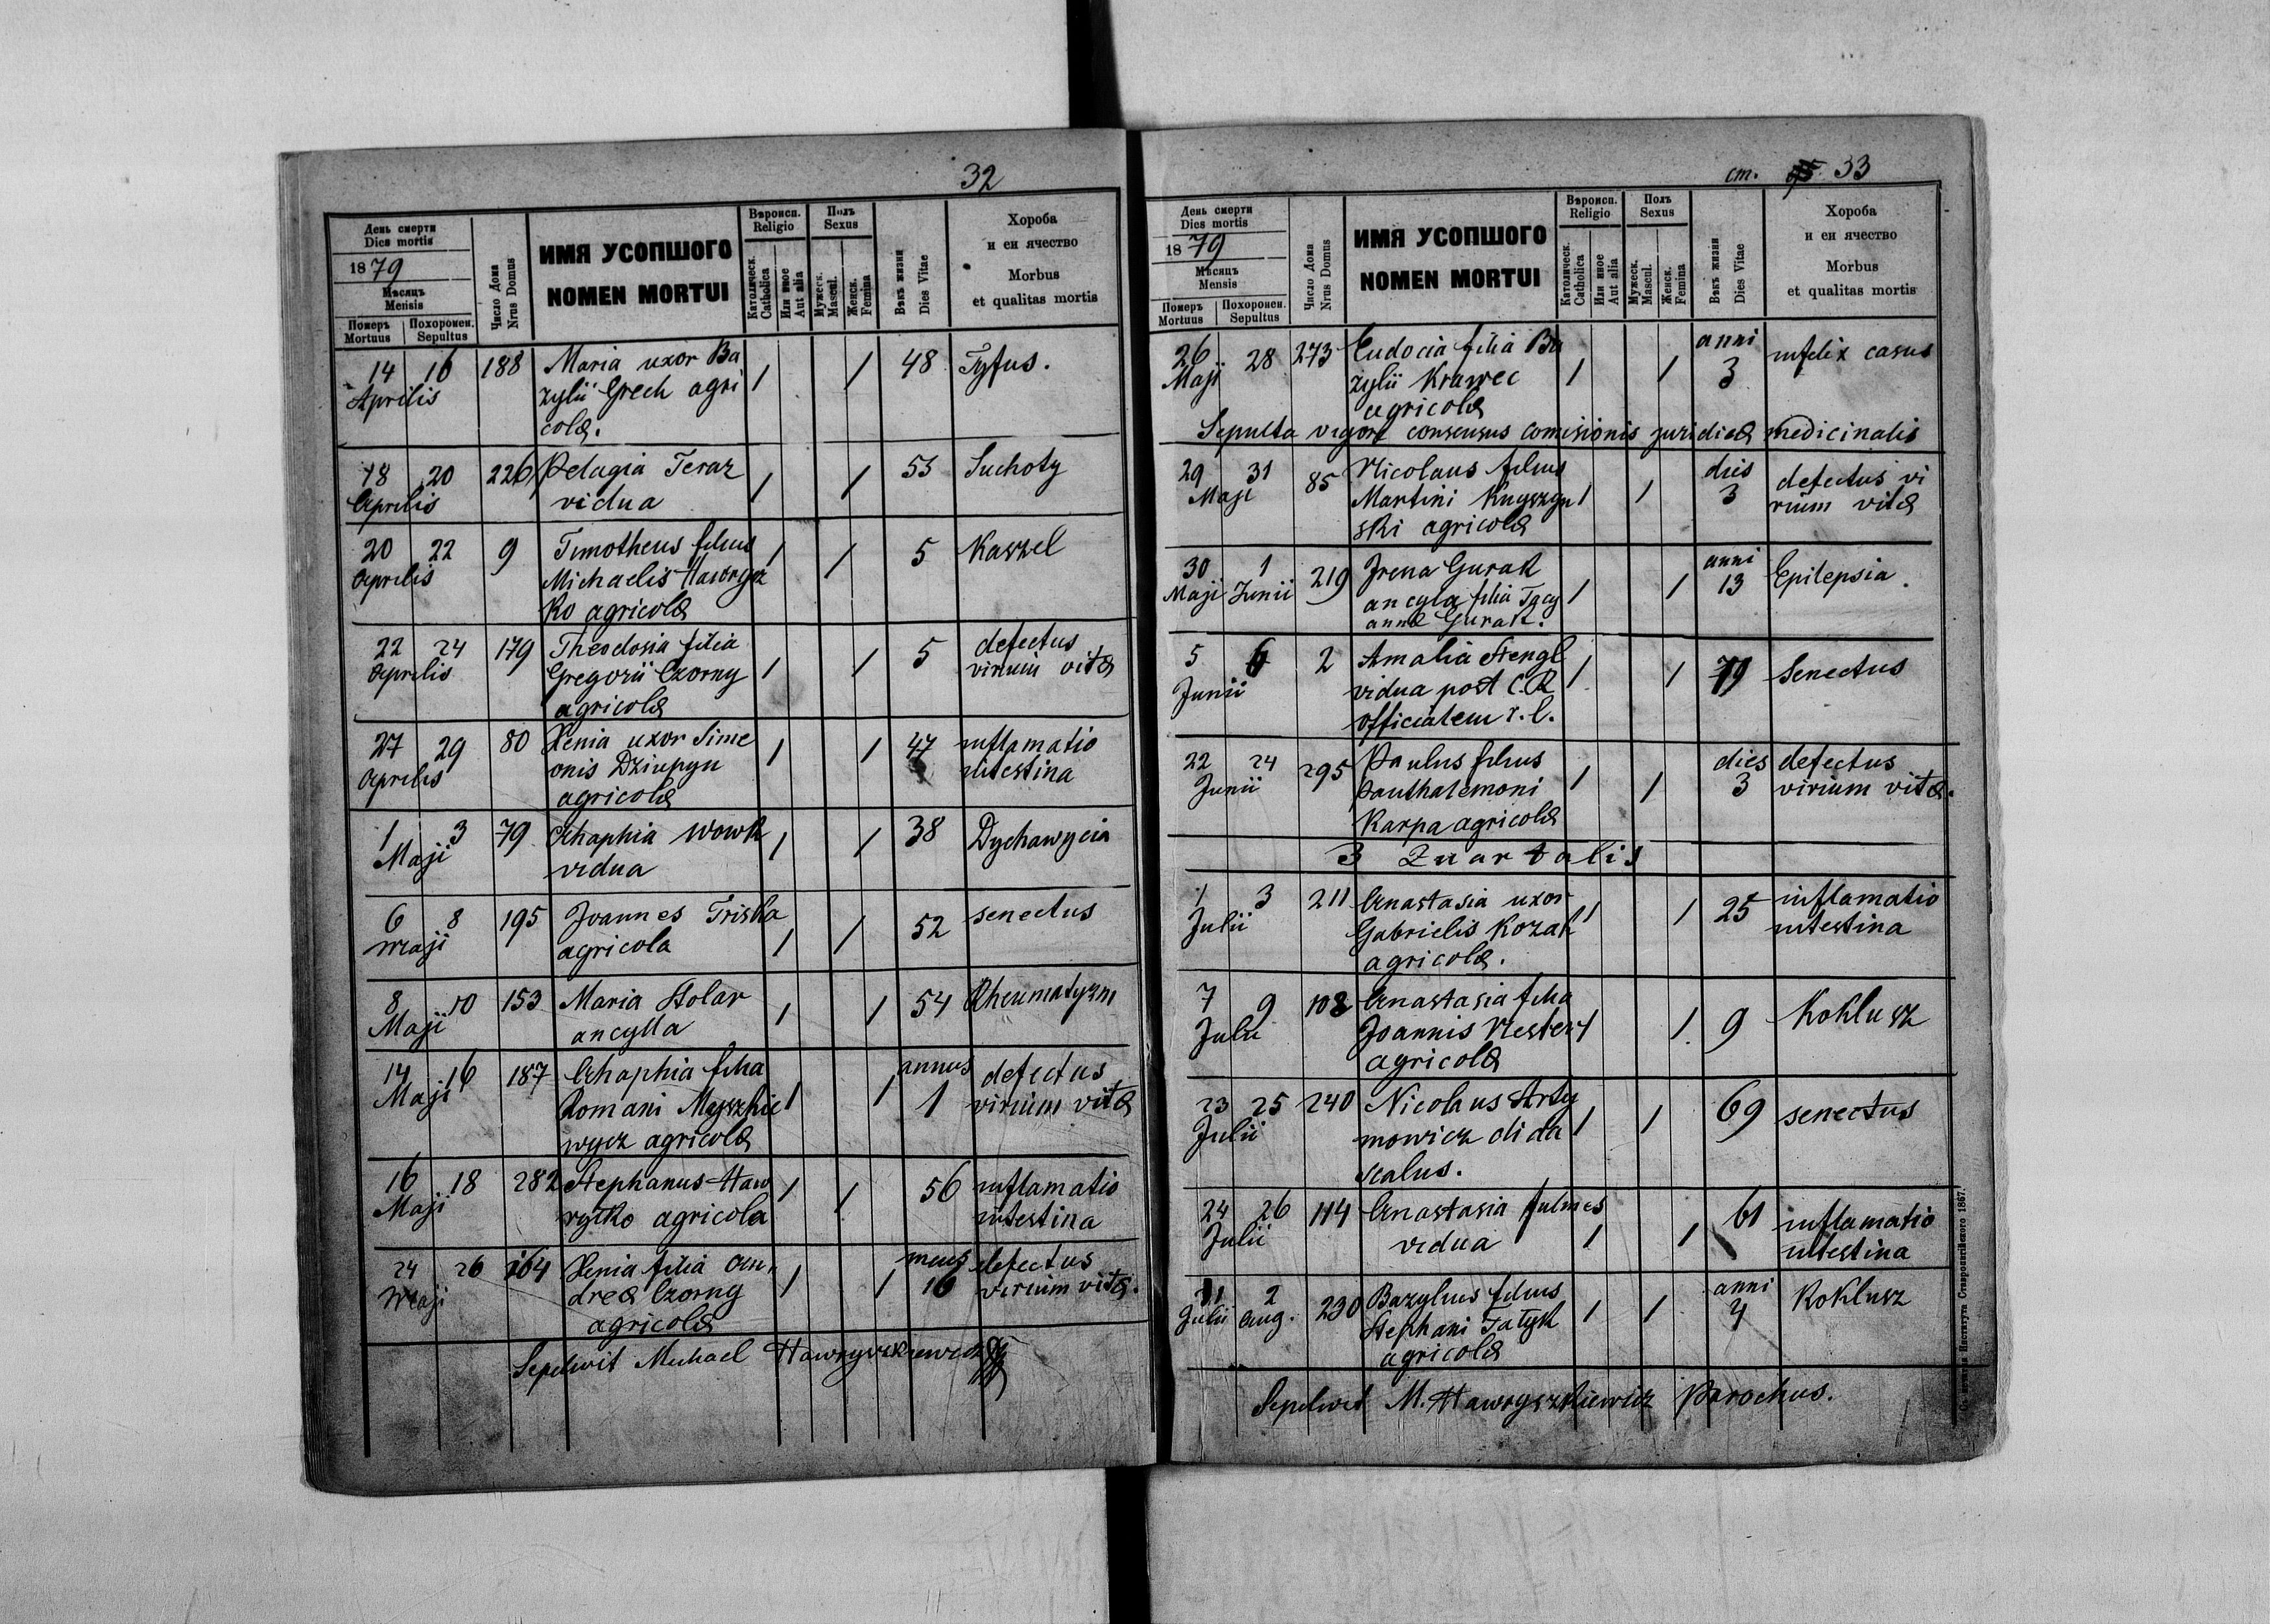 32
День смерти
Dies mortis
1879
Мѣсяць
Mensis
Померъ
Mortuus
Похоронен.
Sepultus
Число Дома
Nrus Domus
ИМЯ УСОПШОГО
NOMEN MORTUI
Вѣроисп.
Religio
Католическ.
Catholica
Или иное
Aut alia
Полъ
Sexus
Мужеск.
Mascul.
Женск.
Femina
Вѣкъ жизни
Dies Vitae
Хороба
и еи ячество
Morbus
et qualitas mortis
14 16 188 Maria uxor Ba / / 48 Tyfus.
Aprilis zylii Grech agri
colæ.
18 20 226 Pelagia Teraz / / 55 Suchoty
Aprilis vidua
20 22 9 Timotheus filius / / 5 Kaszel
Aprilis Michaelis Hawrycz
ko agricolæ
22 24 179 Theodosia filia / / 5 defectus
Aprilis Gregorii Czorny virium vitæ
agricolæ
27 29 80 Xenia uxor Sime / / 47 inflamatio
Aprilis onis Dziupyn intestina
agricolæ
1 3 79 Ahaphia Wowk / / 38 Dychawycia
Maji vidua
6 8 195 Joannes Triska / / 52 senectus
Maji agricola
8 10 153 Maria Stolar / / 54 Rheumatyzm
Maji ancylla
14 16 187 Ahaphia filia / / annus defectus
Maji Romani Myszkie 1 virium vitæ
wycz agricolæ
16 18 282 Stephanus Haw / / 56 inflamatio
Maji rycko agricola intestina
24 26 164 Xenia filia An / / mens defectus
Maji dreæ Czorny 16 virium vitæ.
agricolæ
Sepelivit Michael Hawryszkiewicz
ст. 33
День смерти
Dies mortis
1879
Мѣсяць
Mensis
Померъ
Mortuus
Похоронен.
Sepultus
Число Дома
Nrus Domus
ИМЯ УСОПШОГО
NOMEN MORTUI
Вѣроисп.
Religio
Католическ.
Catholica
Или иное
Aut alia
Полъ
Sexus
Мужеск.
Mascul.
Женск.
Femina
Вѣкъ жизни
Dies Vitae
Хороба
и еи ячество
Morbus
et qualitas mortis
26 28 273 Eudocia filia Ba / / anni infelix casus
Maji zylii Krawec 3
agricolæ
Sepulta vigore consensus comisionis juridicæ medicinalis
29 31 85 Nicolaus filius / / dies defectus vi
Maji Martini Knyszyn 3 rium vitæ
ski agricolæ
30 1 219 Irena Gurak / / anni Epilepsia.
Maji Junii ancyla filia Tacy 13
annæ Gurak.
5 6 2 Amalia Stengl / / 79 Senectus
Junii vidua post C.R.
officialem r.l.
22 24 295 Paulus filius / / dies defectus
Junii Panthalemoni 3 virium vitæ.
Karpa agricolæ
3 Quartalis
1 3 211 Anastasia uxor / / 25 inflamatio
Julii Gabrielis Kozak intestina
agricolæ.
7 9 108 Anastasia filia / / 9 Koklusz
Julii Joannis Nester
agricolæ
23 25 240 Nicolaus Arty / / 69 senectus
Julii mowicz dida
scalus.
24 26 114 Anastasia Fulmes / / 61 inflamatio
Julii vidua intestina
31 2 230 Bazylius filius / / anni Koklusz
Julii Aug. Stephani Tatyk 4
agricolæ
Sepelivit M. Hawryszkiewicz Parochus.
Института Ставропигійского 1867.